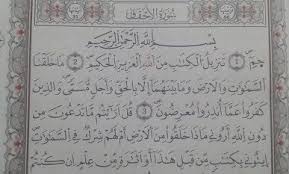 سُورَةُ الْأَحْقَافِ
بِسْمِ اللَّهِ الرَّحْمَٰنِ الرَّحِيمِ
حمٓ ۝١ تَنزِيلُ الْكِتَابِ مِنَ اللَّهِ الْعَزِيزِ الْحَكِيمِ ۝٢ مَا خَلَقْنَا
السَّمَاوَاتِ وَالْأَرْضَ وَمَا بَيْنَهُمَا إِلَّا بِالْحَقِّ وَأَجَلٍ مُّسَمًّى وَالَّذِينَ
كَفَرُوا عَمَّا أُنذِرُوا مُعْرِضُونَ ۝٣ قُلْ أَرَأَيْتُم مَّا تَدْعُونَ مِن
دُونِ اللَّهِ أَرُونِي مَاذَا خَلَقُوا مِنَ الْأَرْضِ أَمْ لَهُمْ شِرْكٌ فِي السَّمَاوَاتِ
ائْتُونِي بِكِتَابٍ مِّن قَبْلِ هَٰذَا أَوْ أَثَارَةٍ مِّنْ عِلْمٍ إِن كُنتُمْ